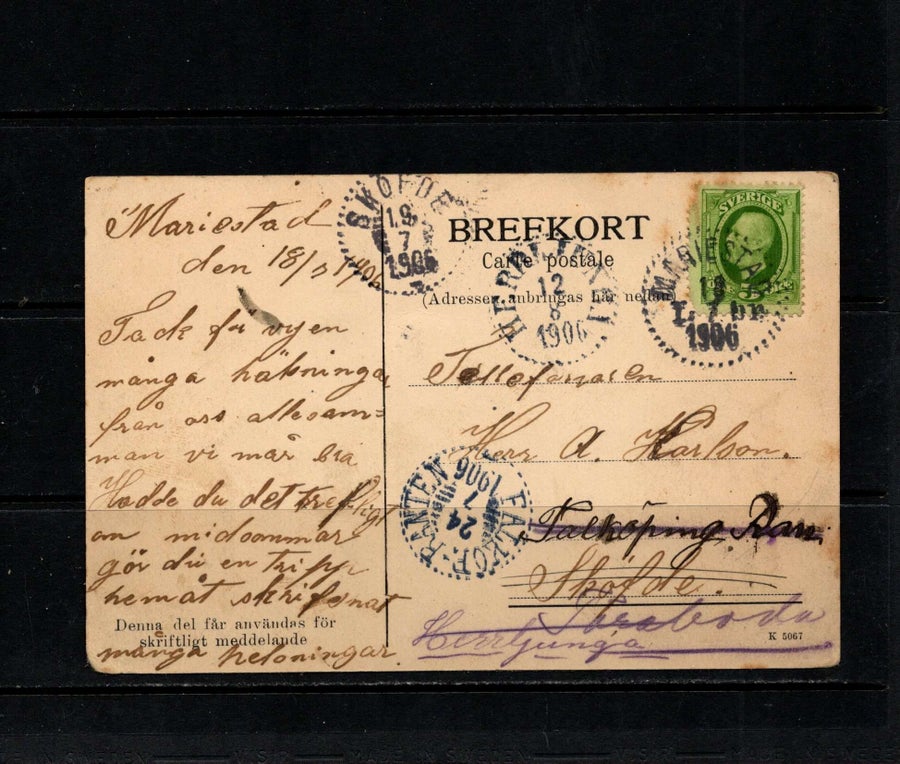 Mariestad
den 18/7 190
Tack för vyen
många hälsningar
från oss allesam=
man vi mår bra
Hadde du det trefligt
om midsommar
gör du en tripp
hemåt skrif snart
Denna del får användas för
skriftligt meddelande
många helsningar.
SKÖFDE
19
7
1906
BREFKORT
Carte postale
(Adressen anbringas här nedan)
HERRLJUNGA
12
8
1906
SVERIGE
5
MARIESTAD
18
7
1906
Herr A. Karlson.
FALKÖP.-RANTEN
24
7
1906
Falköping Ran.
Sköfde.
Töreboda
Herrljunga
K 5067